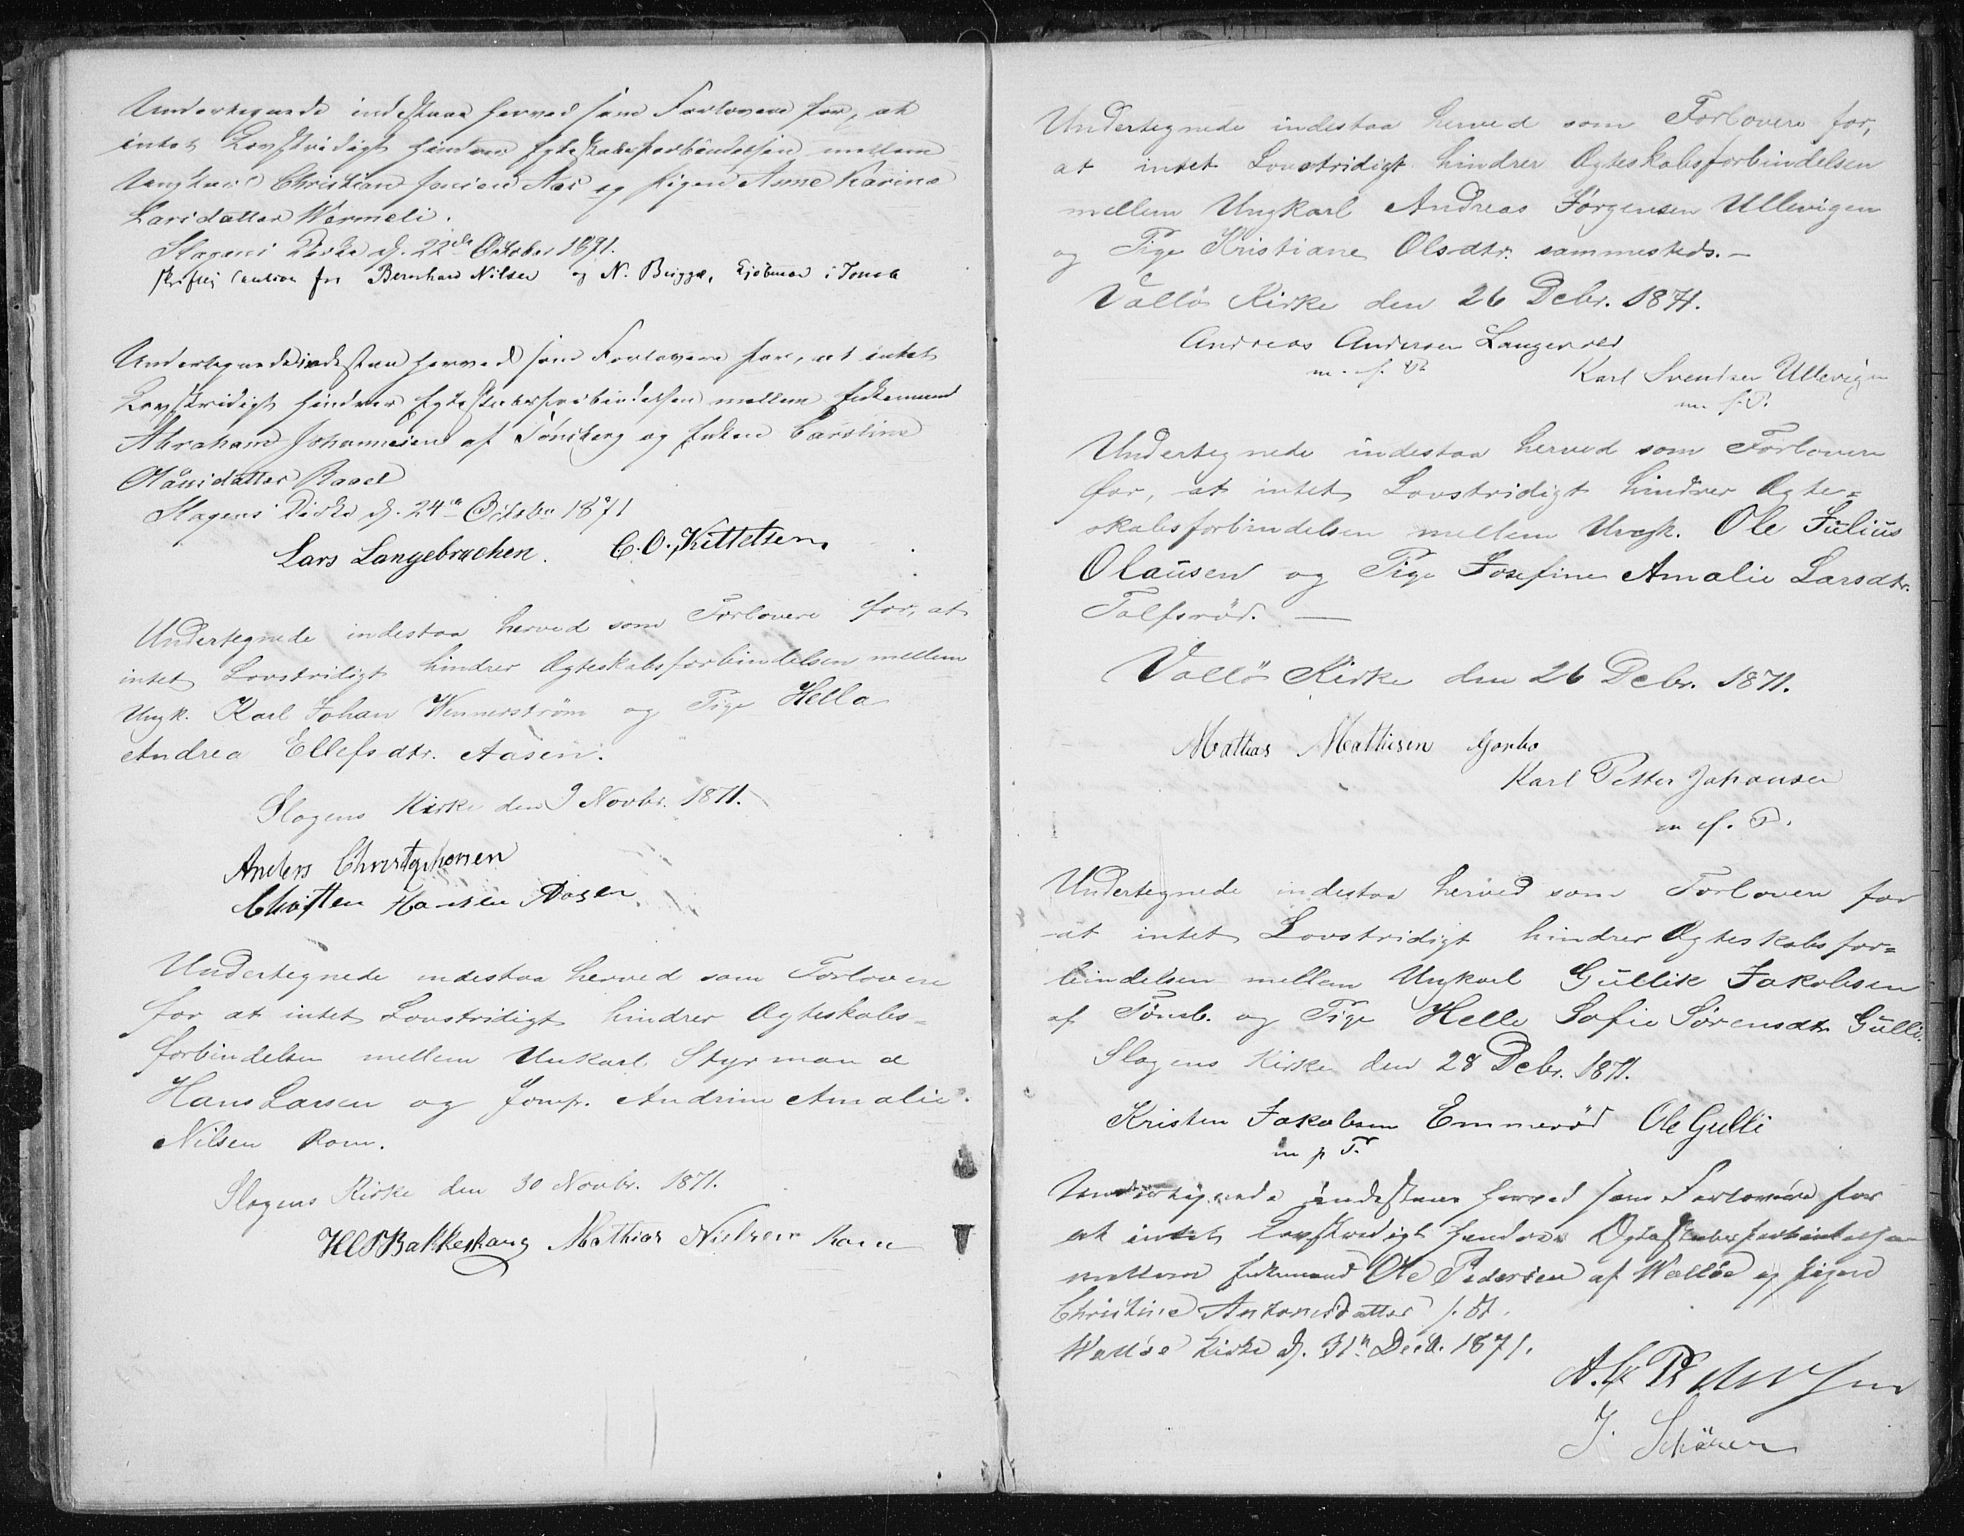 Undertegnede indestaae herved som Forlovere for, at
intet Lovstridigt hindrer Egteskabsforbindelsen mellem
Ungkarl Christian Jensen Aas og Pigen Anne Karine
Larsdatter Wermeli.
Slagens Kirke d. 22de October 1871.
skriftlig Caution fra Bernhard Nilsen og N. Bugge, Kjøbmænd i Tønsb
Undertegnede indestaa herved som Forlovere for, at intet
Lovstridigt hindrer Egteskabsforbindelsen mellem Enkemand
Abraham Johannesen af Tønsberg og Enken Caroline
Hansdatter Basel
Slagens Kirke d. 24de October 1871
Lars Langebrechen. C. O. Kittelsen.
Undertegnede indestaa herved som Forlovere for, at
intet Lovstridigt hindrer Ægteskabsforbindelsen mellem
Ungk. Karl Johan Wennerström og Pige Hella
Andrea Ellefsdtr. Aasen.
Slagens Kirke den 9 Novbr. 1871.
Anders Christophersen
Christen Hansen Aasen
Undertegnede indestaa herved som Forlovere
for at intet Lovstridigt hindrer Ægteskabs=
forbindelsen mellem Unkarl Styrmand
Hans Larsen og Jomf. Andrine Amalie
Nilsen Rom.
Slagens Kirke den 30 Novbr. 1871.
HCS Bakkeskaug Mathias Nielsen Rom
Undertegnede indestaa herved som Forlovere for,
at intet Lovstridigt hindrer Ægteskabsforbindelsen
mellem Ungkarl Andreas Jørgensen Ullevigen
og Pige Kristiane Olsdtr. sammesteds. —
Vallö Kirke den 26 Debr. 1871.
Andreas Andersen
m. f. P.
Karl Svendsen Ullevigen
m. f. P.
Undertegnede indestaa herved som Forlovere
for, at intet Lovstridigt hindrer Ægte=
skabsforbindelsen mellem Ungk. Ole Julius
Olausen og Pige Josefine Amalie Larsdtr.
Tolfsrød. —
Vallö Kirke den 26 Debr. 1871.
Mathias Mathisen Gorbo
Karl Petter Johansen
m. f. P.
Undertegnede indestaa herved som Forlovere for
at intet Lovstridigt hindrer Ægteskabsfor=
bindelsen mellem Ungkarl Gullik Jakobsen
af Tönsb. og Pige Helle Sofie Sørensdtr. Gulli.
Slagens Kirke den 28 Debr. 1871.
Kristen Jakobsen Emmerød Ole Gulli
m p P.
Undertegnede indestaae herved som Forlovere for
at intet Lovstridigt hindrer Ægteskabsforbindelsen
mellem Enkemand Ole Pedersen af Walløe og Pigen
Christine Antonsdatter s. St.
Walløe Kirke d. 31te Decb. 1871.
Pedersen
J. Schøuen